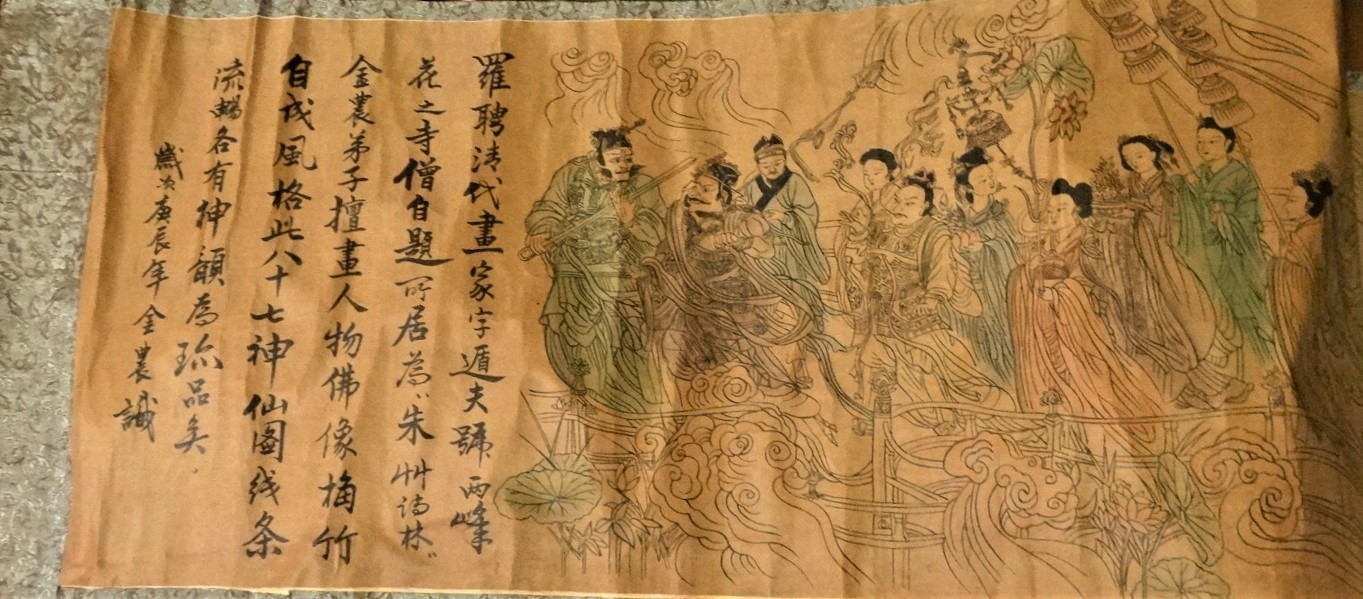 羅聘清代畫家字遁夫號两峰
花之寺僧自題所居為"朱艸詩林"
金農弟子擅畫人物佛像梅竹
自成風格此八十七神仙图线条
流暢各有神韻為珎品矣.
歲次庚辰年金農識